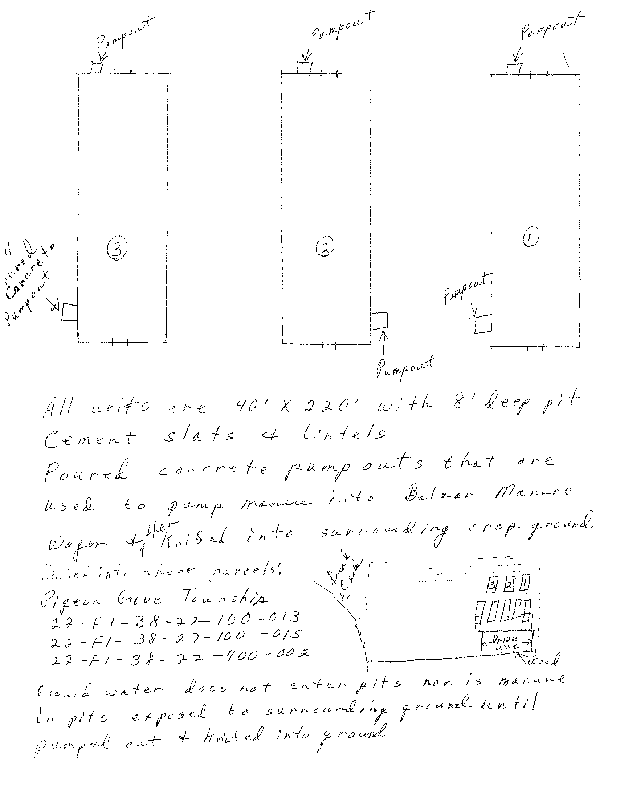 Pumpout
Pumpout
Pumpout
3
2
1
Poured
Concrete
Pumpout
Pumpout
Pumpout
All units are 40' X 220' with 8' deep pit
Cement slats & lintels
Poured concrete pumpouts that are
used to pump manure into Balzer Manure
Wagon & then Knifed into surrounding crop ground.
parcels:
Pigeon Grove Township
22-F1-38-22-100-013
22-F1-38-22-100-015
22-F1-38-22-400-002
3 2 1
water does not enter pits nor is manure
in pits exposed to surrounding ground until
pumped out & knifed into ground